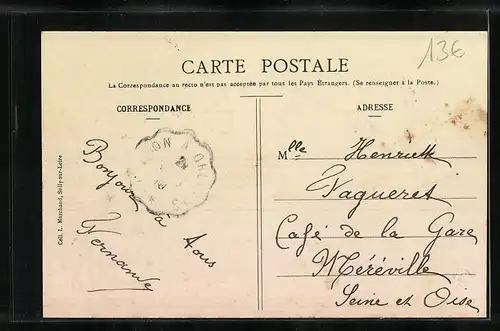 136
CARTE POSTALE
La Correspondance au recto n'est pas acceptée par tous les Pays Étrangers. (Se renseigner à la Poste.)
CORRESPONDANCE
ADRESSE
Coll. L. Marchand, Sully-sur-Loire
Bonjour
à tous
Fernande
Mlle Henriette
Vaqueret
Café de la Gare
Méréville
Seine et Oise